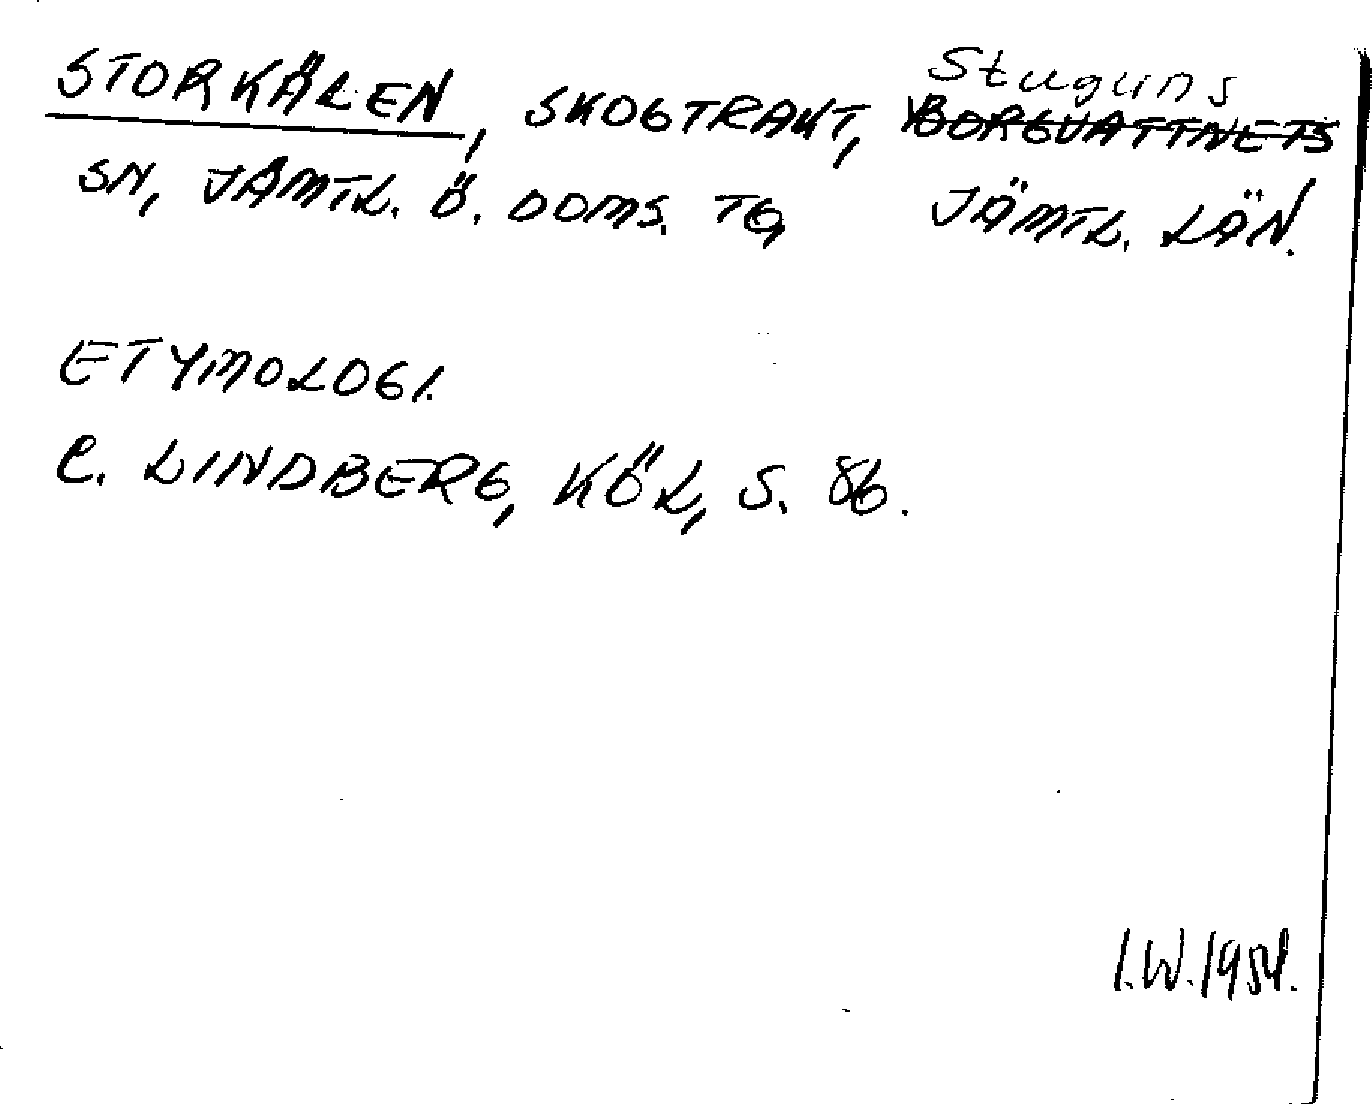 STORKÄLEN, SKOGTRAKT, Stuguns BORGVATTNETS
SN, JÄMTL. Ö. DOMS. TG JÄMTL. LÄN.
ETYMOLOGI.
C. LINDBERG, KÖL, S. 86.
I.W. 1954.